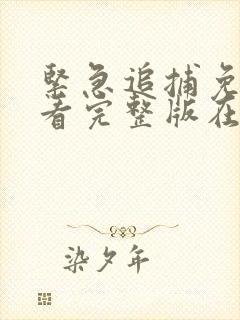 緊急追捕免
看完整版在
染夕年